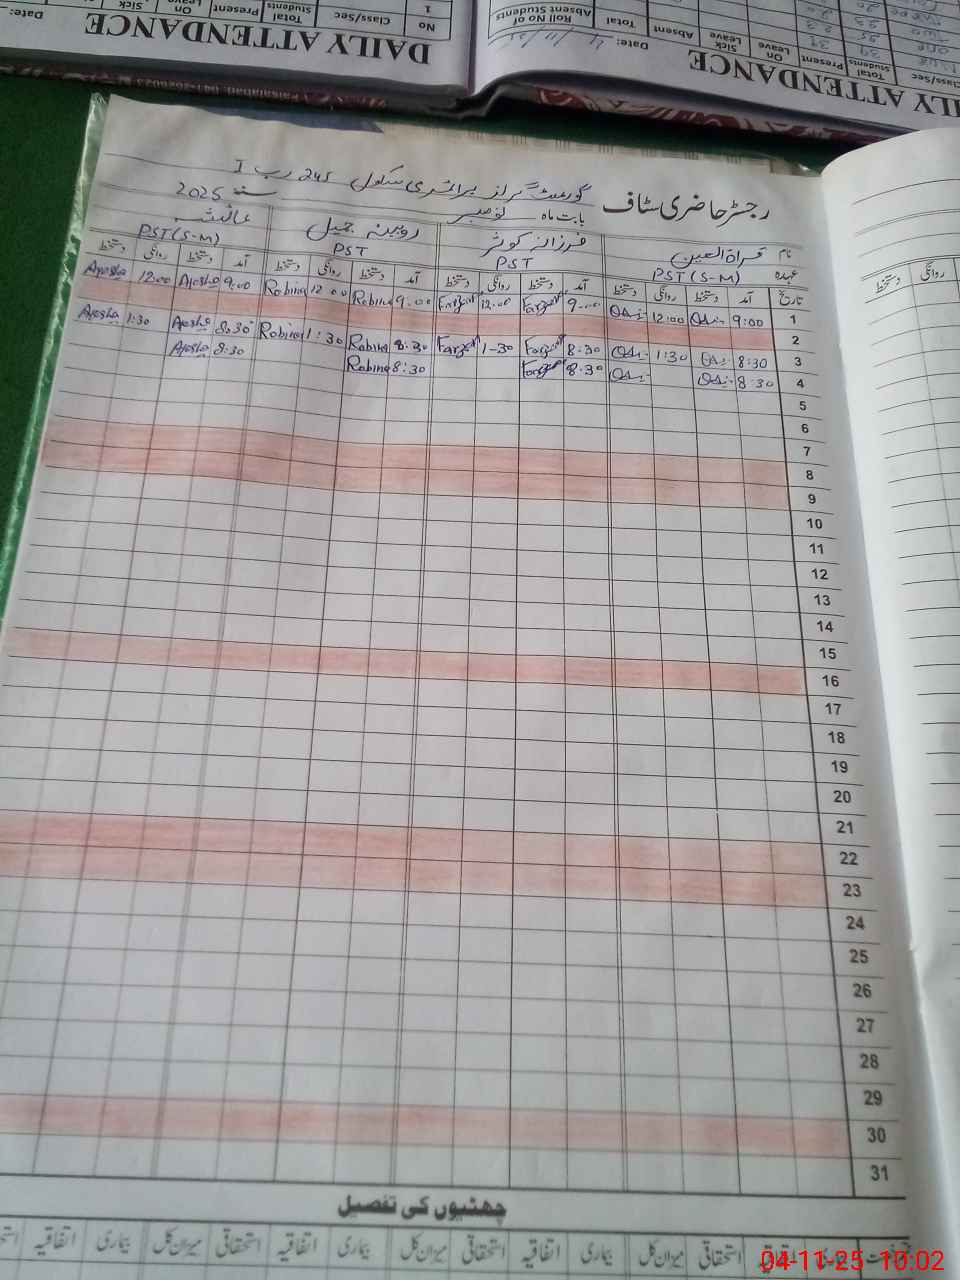 DAILY ATTENDANCE
Date:
No
Class/Sec
Total Students
Present
On Leave
Sick
1
DAILY ATTENDANCE
Date: 4/11/25
Class/Sec
Total Students
Present
On Leave
Sick Leave
Absent
Total
Roll No of Absent Students
رجسٹر حاضری سٹاف گورنمنٹ گرلز پرائمری سکول 245 رب I
بابت ماہ نومبر سنہ 2025
نام قراۃ العین فرزانہ کوثر روبینہ جمیل عائشہ
عہدہ PST (S-M) PST PST PST (S-M)
تاریخ آمد دستخط روانگی دستخط آمد دستخط روانگی دستخط آمد دستخط روانگی دستخط آمد دستخط روانگی دستخط
1 9:00 12:00 9:00 12:00 9:00 Robina 12:00 Robina 9:00 Ayesha 12:00 Ayesha
2
3 8:30 1:30 8:30 1-30 8:30 Robina 1:30 Robina 8:30 Ayesha 1:30 Ayesha
4 8:30 8:30 8:30 Robina 8:30 Ayesha
5
6
7
8
9
10
11
12
13
14
15
16
17
18
19
20
21
22
23
24
25
26
27
28
29
30
31
چھٹیوں کی تفصیل
اتفاقیہ استحقاقی میزان کل بیماری اتفاقیہ استحقاقی میزان کل بیماری اتفاقیہ استحقاقی میزان کل بیماری اتفاقیہ
04-11-25 10:02